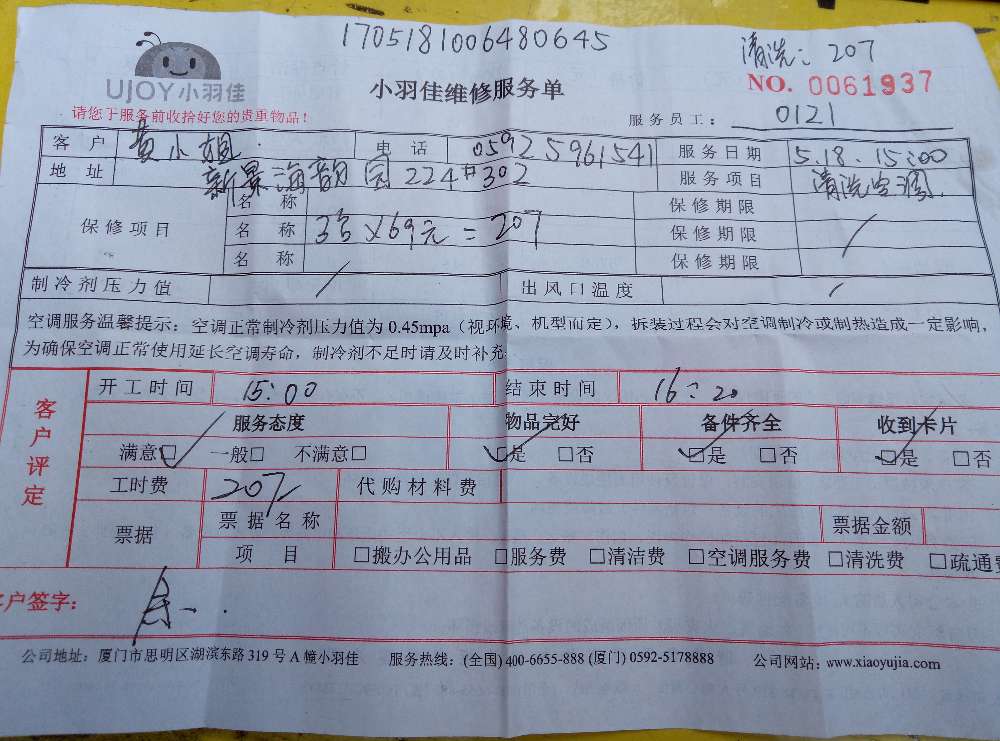 1705181006480645
清洗:207
UJOY小羽佳
小羽佳维修服务单
NO. 0061937
请您于服务前收拾好您的贵重物品！
服务员工： 0121
客户 黄小姐 电话 0592 5961541 服务日期 5.18.15:00
地址 新景海韵园224#302 服务项目 清洗空调
保修项目 名称 保修期限
名称 3台×69元=207 保修期限
名称 保修期限
制冷剂压力值 / 出风口温度 /
空调服务温馨提示：空调正常制冷剂压力值为 0.45mpa（视环境、机型而定），拆装过程会对空调制冷或制热造成一定影响，
为确保空调正常使用延长空调寿命，制冷剂不足时请及时补充
客户评定
开工时间 15:00 结束时间 16:20
服务态度 物品完好 备件齐全 收到卡片
满意☑ 一般□ 不满意□ ☑是 □否 ☑是 □否 ☑是 □否
工时费 207 代购材料费
票据 票据名称 票据金额
项目 □搬办公用品 □服务费 □清洁费 □空调服务费 □清洗费 □疏通费
客户签字：
公司地址：厦门市思明区湖滨东路 319 号 A 幢小羽佳 服务热线：(全国) 400-6655-888 (厦门) 0592-5178888 公司网站：www.xiaoyujia.com